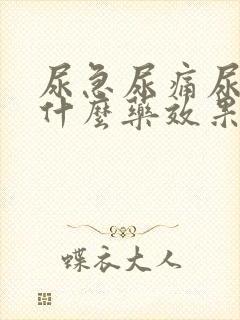 尿急尿痛尿
什麼藥效果
蝶衣大人